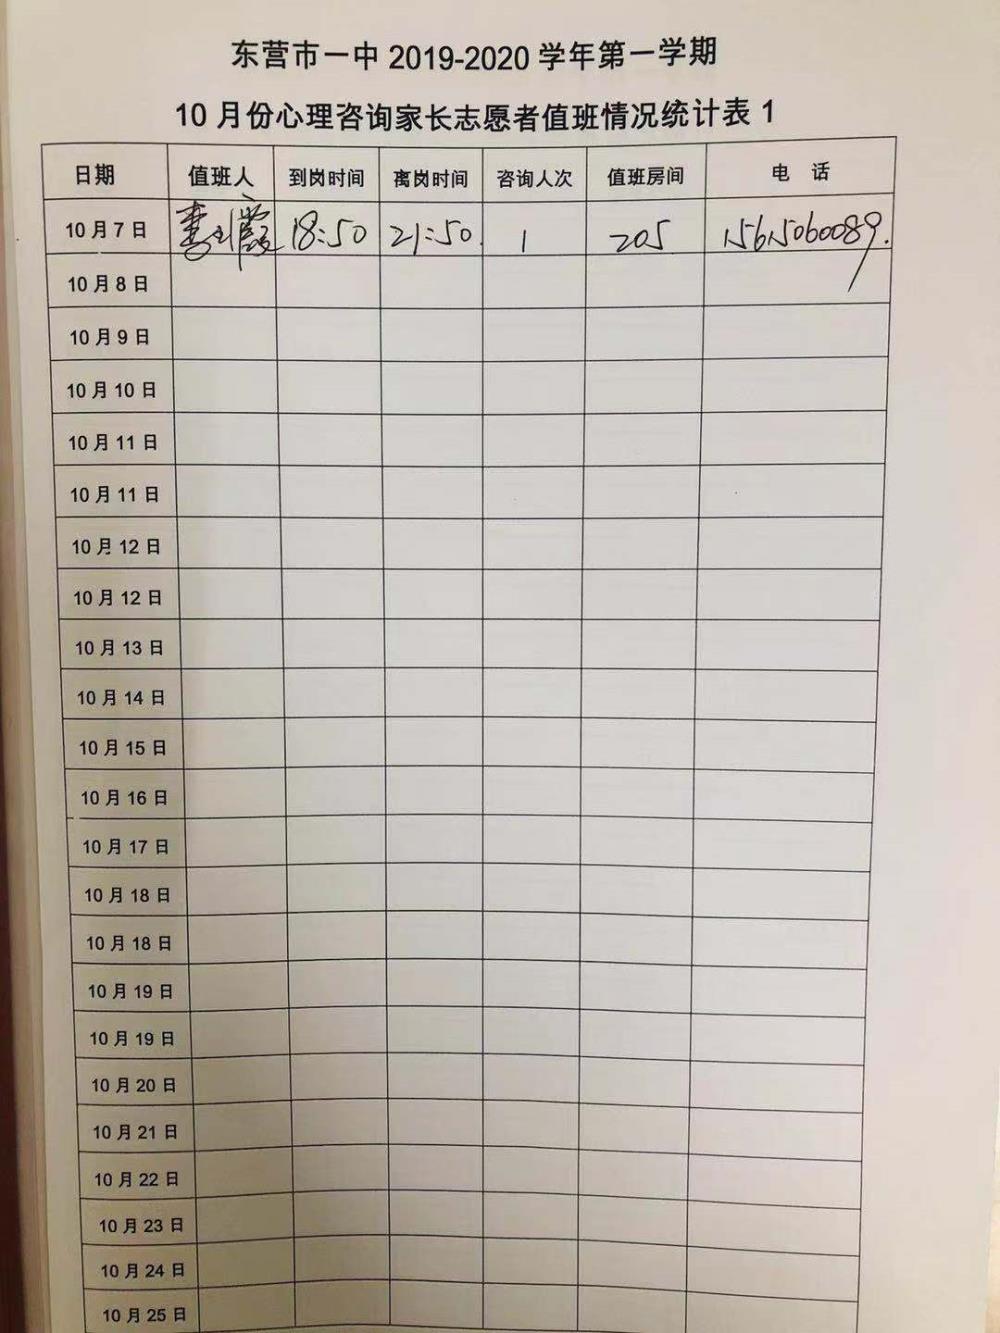 东营市一中 2019-2020 学年第一学期
10 月份心理咨询家长志愿者值班情况统计表 1
日期 值班人 到岗时间 离岗时间 咨询人次 值班房间 电 话
10 月 7 日 18:50 21:50. 1 205
10 月 8 日
10 月 9 日
10 月 10 日
10 月 11 日
10 月 11 日
10 月 12 日
10 月 12 日
10 月 13 日
10 月 14 日
10 月 15 日
10 月 16 日
10 月 17 日
10 月 18 日
10 月 18 日
10 月 19 日
10 月 19 日
10 月 20 日
10 月 21 日
10 月 22 日
10 月 23 日
10 月 24 日
10 月 25 日